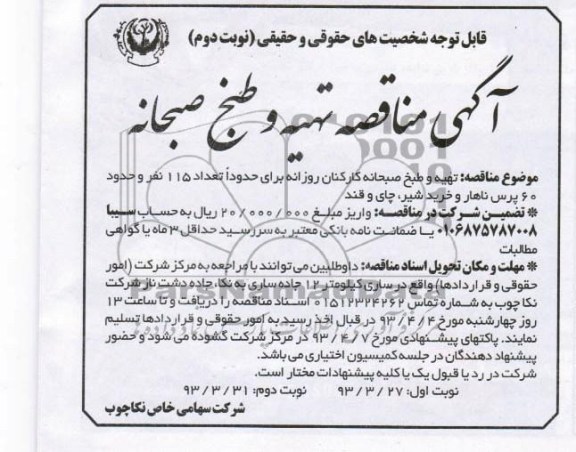 قابل توجه شخصیت های حقوقی و حقیقی (نوبت دوم)
آگهی مناقصه تهیه و طبخ صبحانه
موضوع مناقصه: تهیه و طبخ صبحانه کارکنان روزانه برای حدوداً تعداد ۱۱۵ نفر و حدود
۶۰ پرس ناهار و خرید شیر، چای و قند
* تضمین شرکت در مناقصه: واریز مبلغ ۲۰/۰۰۰/۰۰۰ ریال به حساب سیبا
۰۱۰۶۸۷۵۷۸۷۰۰۸ یا ضمانت نامه بانکی معتبر به سررسید حداقل ۳ ماه یا گواهی
مطالبات
* مهلت و مکان تحویل اسناد مناقصه: داوطلبین می توانند با مراجعه به مرکز شرکت (امور
حقوقی و قراردادها) واقع در ساری کیلومتر ۱۲ جاده ساری به نکا، جاده دشت ناز شرکت
نکا چوب به شماره تماس ۰۱۵۱۲۳۲۴۲۶۲ اسناد مناقصه را دریافت و تا ساعت ۱۳
روز چهارشنبه مورخ ۹۳/۴/۴ در قبال اخذ رسید به امور حقوقی و قراردادها تسلیم
نمایند. پاکتهای پیشنهادی مورخ ۹۳/۴/۷ در مرکز شرکت گشوده می شود و حضور
پیشنهاد دهندگان در جلسه کمیسیون اختیاری می باشد.
شرکت در رد یا قبول یک یا کلیه پیشنهادات مختار است.
نوبت اول: ۹۳/۳/۲۷ نوبت دوم: ۹۳/۳/۳۱
شرکت سهامی خاص نکاچوب